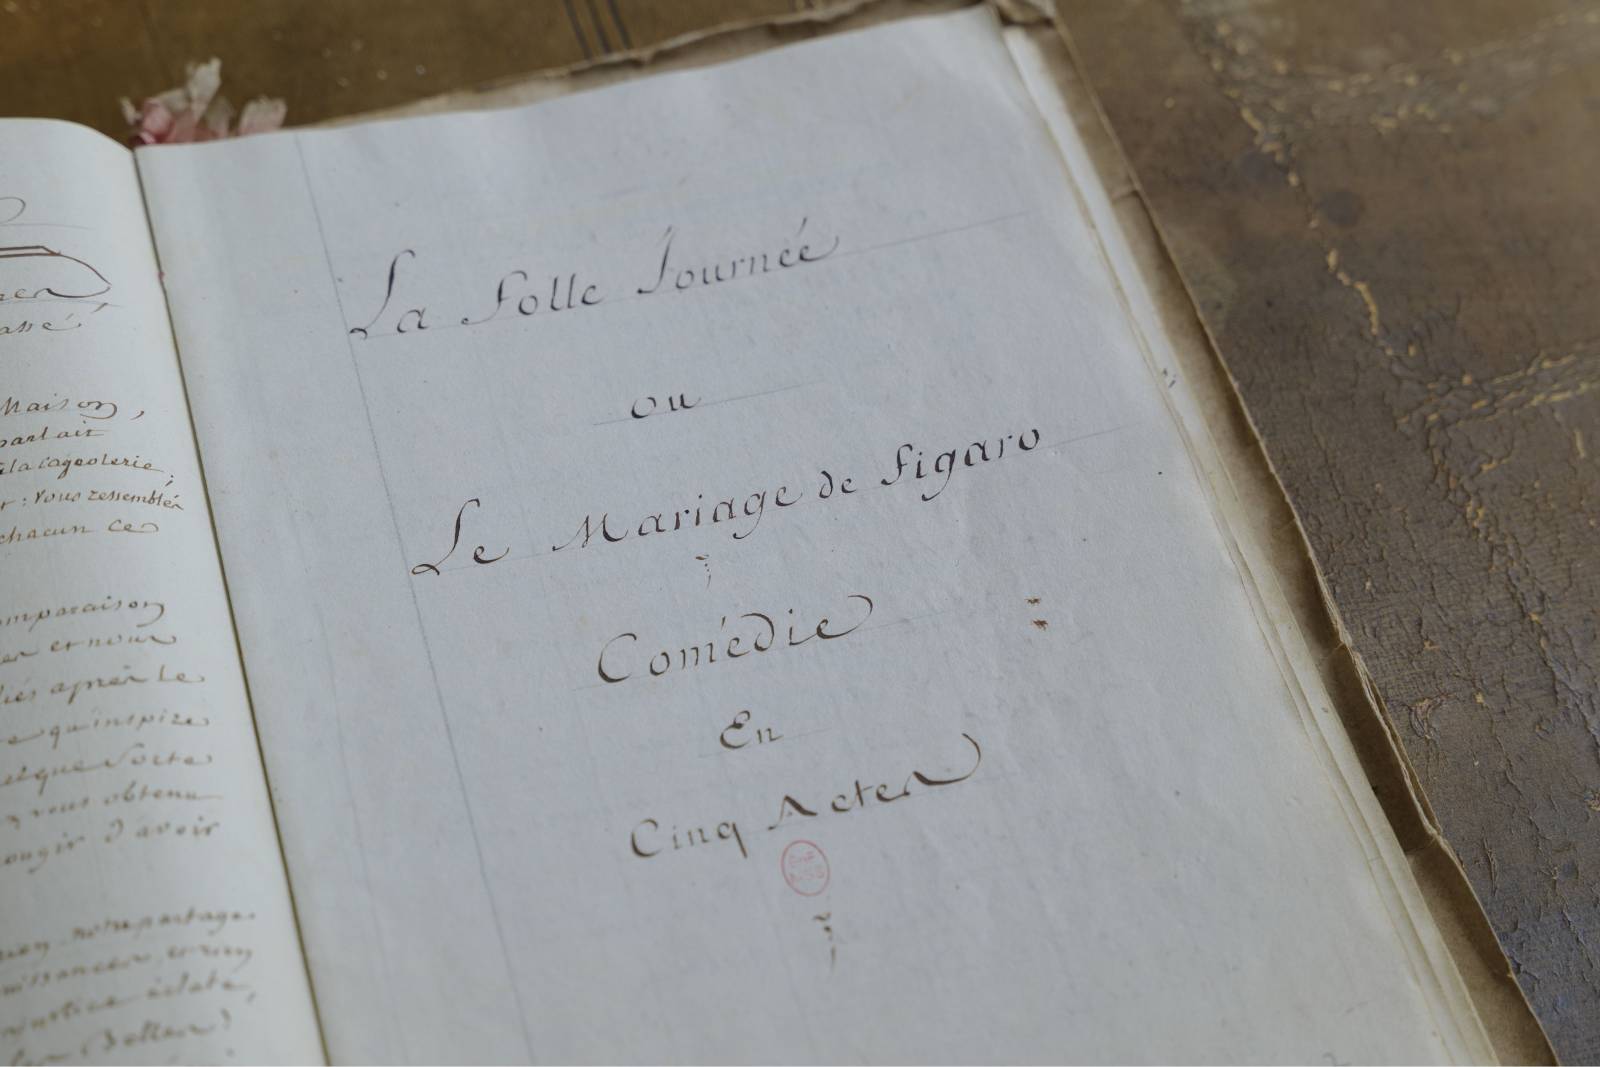 Maison,
parlait
à la cageolerie;
: Vous ressemblés
chacun ce
comparaison
et nous
après le
qu'inspire
Sorte
vous obtenu
rougir d'avoir
notre partage
injustice éclate,
La Folle Journée
ou
Le Mariage de Figaro
Comédie
En
Cinq Actes